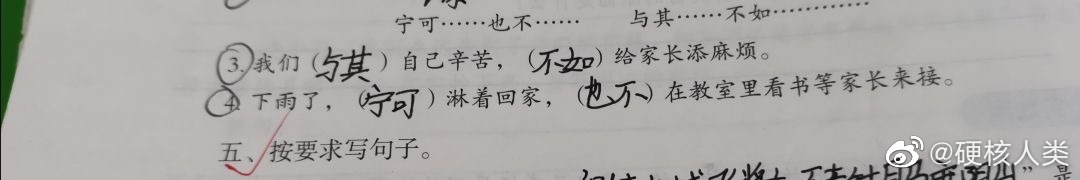 宁可……也不…… 与其……不如…………
3. 我们（与其）自己辛苦，（不如）给家长添麻烦。
4. 下雨了，（宁可）淋着回家，（也不）在教室里看书等家长来接。
五、按要求写句子。
@硬核人类